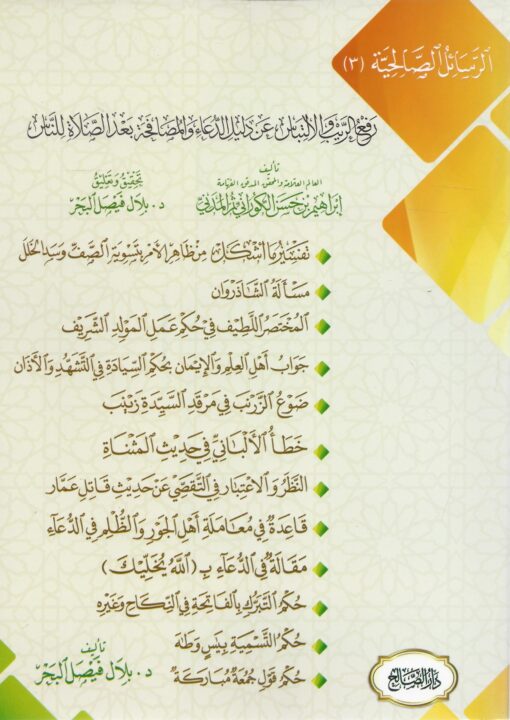 الرَّسَائِلُ الصَّالِحِيَّة (٣)
رَفْعُ الرَّيْبِ وَالِالْتِبَاسِ عَنْ دَلِيلِ الدُّعَاءِ وَالْمُصَافَحَةِ بَعْدَ الصَّلَاةِ لِلنَّاسِ
تأليف
العالم العلامة والمحقق المدقق الفهامة
إِبْرَاهِيمَ بْنِ حَسَنٍ الْكُورَانِيِّ ثُمَّ الْمَدَنِيِّ
تَحْقِيقُ وَتَعْلِيقُ
د. بِلَال فَيْصَل الْبَحْر
تَفْسِيرُ مَا أَشْكَلَ مِنْ ظَاهِرِ الْأَمْرِ بِتَسْوِيَةِ الصَّفِّ وَسَدِّ الْخَلَلِ
مَسْأَلَةُ الشَّاذَرْوَان
الْمُخْتَصَرُ اللَّطِيفُ فِي حُكْمِ عَمَلِ الْمَوْلِدِ الشَّرِيفِ
جَوَابُ أَهْلِ الْعِلْمِ وَالْإِيمَانِ بِحُكْمِ السِّيَادَةِ فِي التَّشَهُّدِ وَالْأَذَانِ
ضَوْعُ الزَّرْنَبِ فِي مَرْقَدِ السَّيِّدَةِ زَيْنَبَ
خَطَأُ الْأَلْبَانِيِّ فِي حَدِيثِ الْمَثْنَاةِ
النَّظَرُ وَالِاعْتِبَارُ فِي التَّقَصِّي عَنْ حَدِيثِ قَاتِلِ عَمَّار
قَاعِدَةٌ فِي مُعَامَلَةِ أَهْلِ الْجَوْرِ وَالظُّلْمِ فِي الدُّعَاءِ
مَقَالَةٌ فِي الدُّعَاءِ بِـ (اللهُ يُخَلِّيكَ)
حُكْمُ التَّبَرُّكِ بِالْفَاتِحَةِ فِي النِّكَاحِ وَغَيْرِهِ
حُكْمُ التَّسْمِيَةِ بِيَس وَطَهَ
حُكْمُ قَوْلِ جُمُعَةٌ مُبَارَكَةٌ
تأليف
د. بِلَال فَيْصَل الْبَحْر
دَارُ الصَّالِح